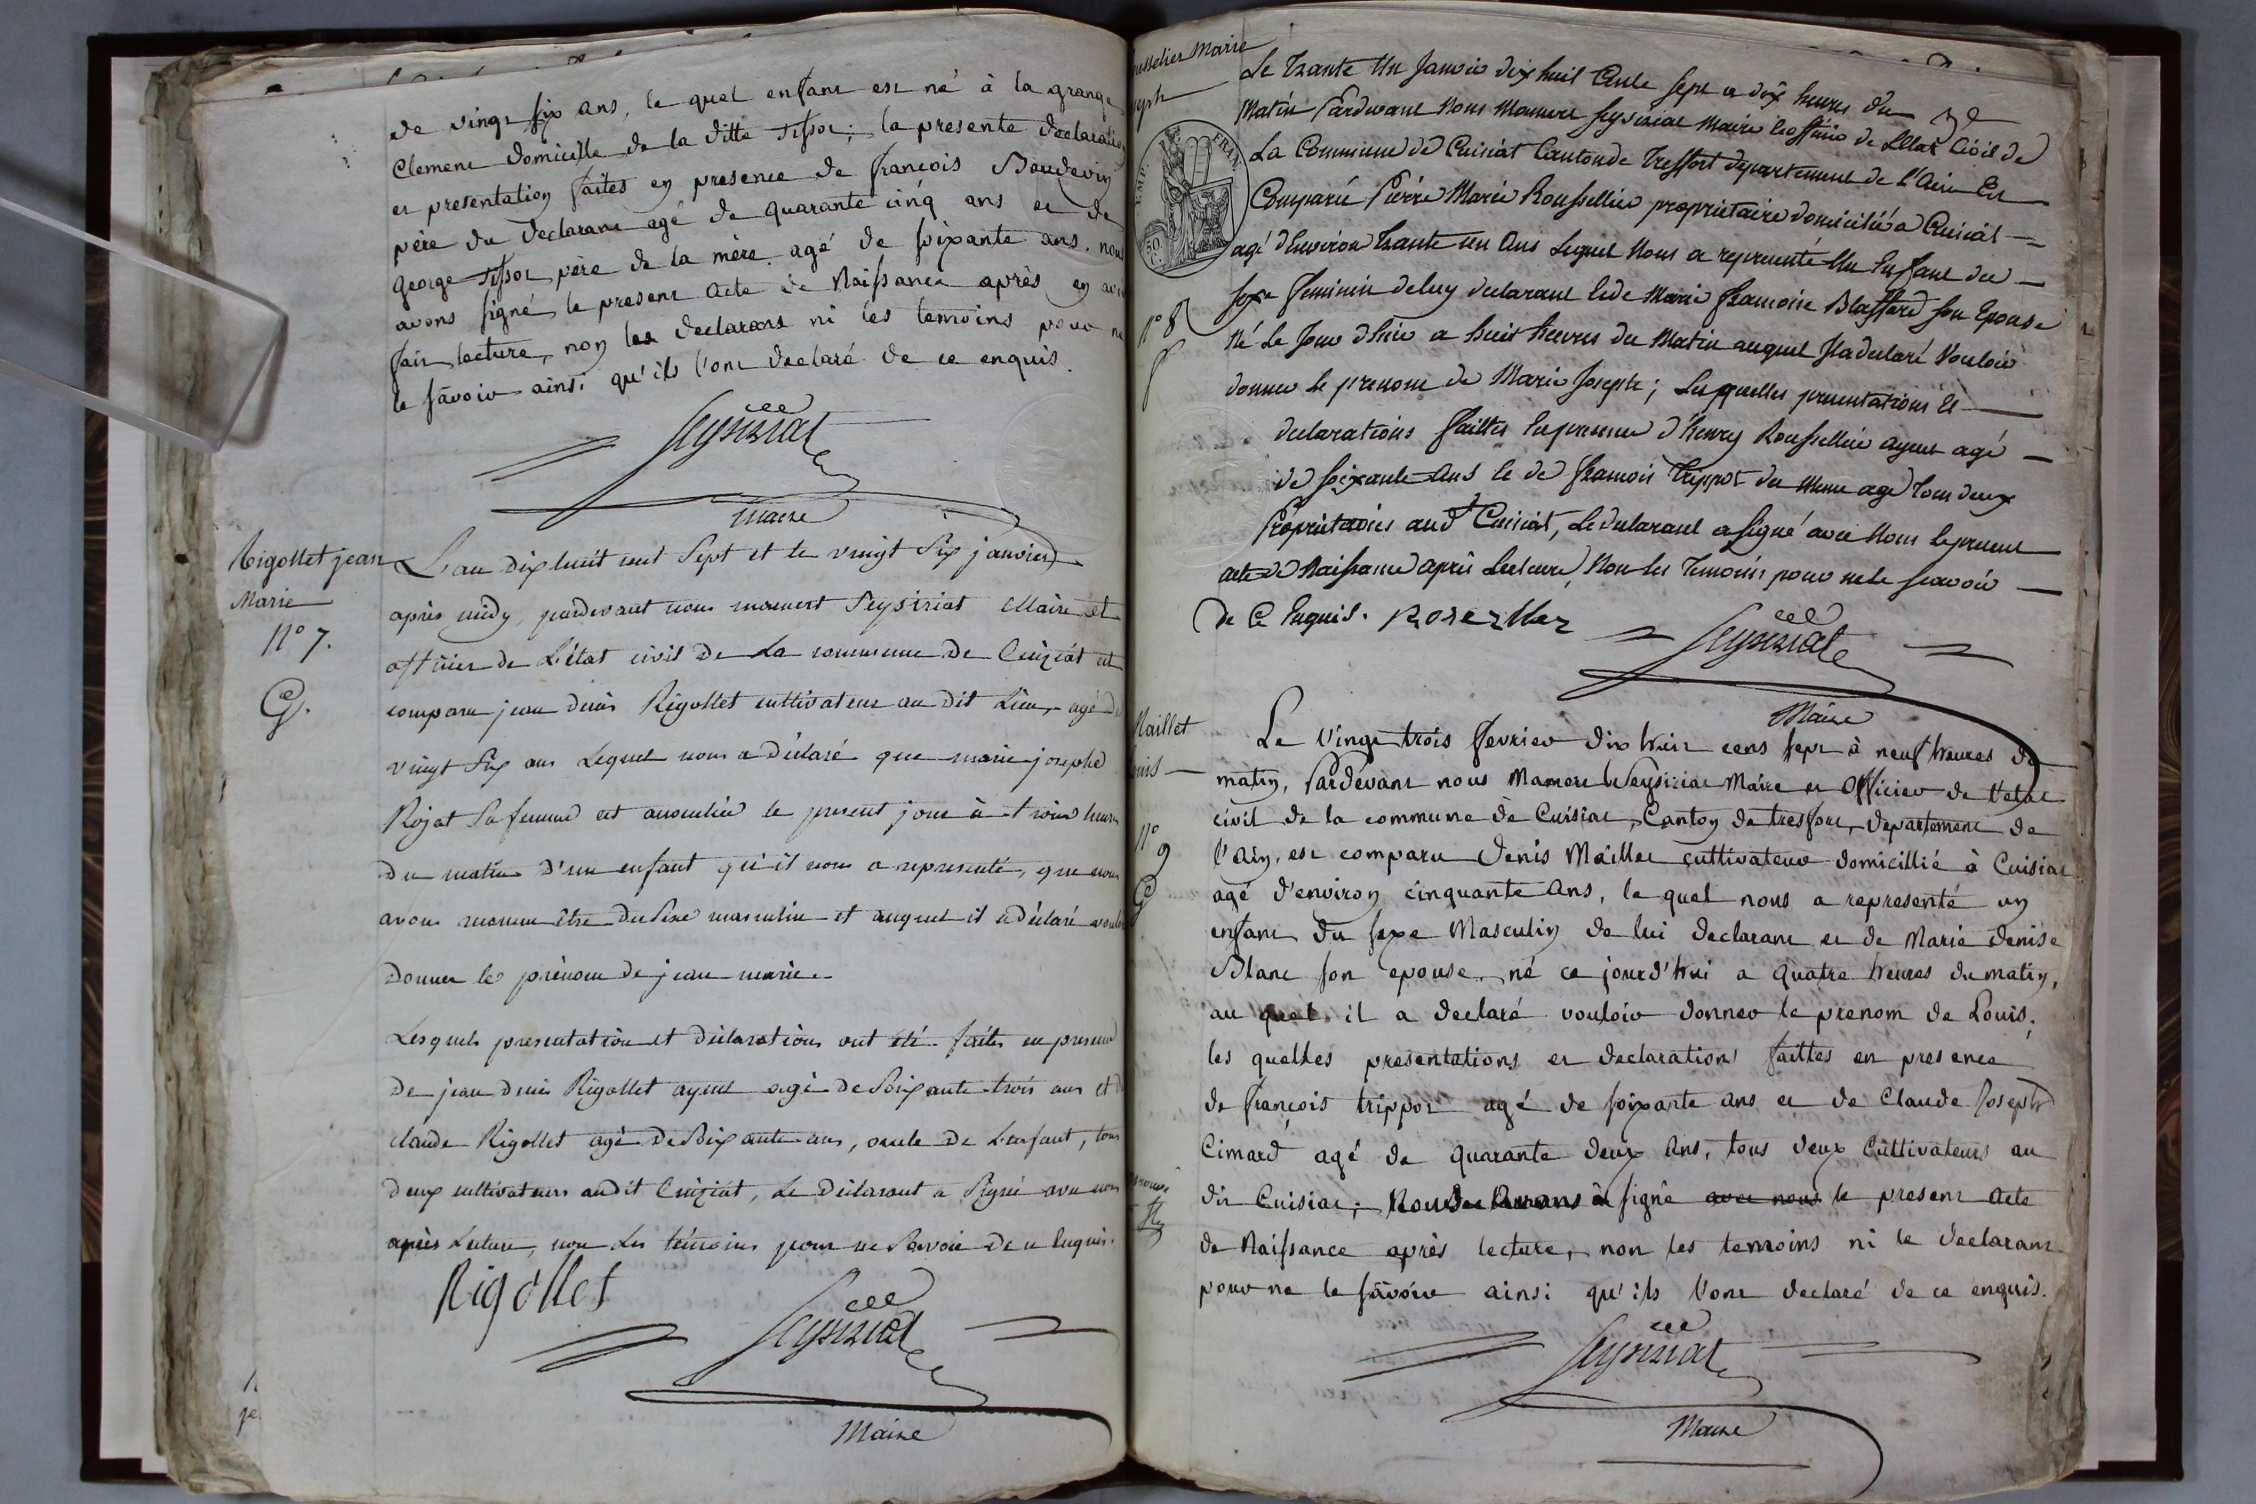 de vingt six ans, le quel enfant est né à la grange
Clement domicille de la ditte Tissot; la presente declaration
et presentation faites en presence de françois Boudevin
père du declarant agé de quarante cinq ans et de
george Tissot père de la mère agé de soixante ans. nous
avons signé le present acte de Naissance après en avoir
fait lecture, non les declarans ni les temoins pour ne
le sçavoir ainsi qu'ils l'ont declaré de ce enquis.
Seysiriat
Maire
Rigollet jean
Marie
N° 7.
G.
L'an dix huit cent Sept et le vingt Six janvier
après midy, pardevant nous mamert Seysiriat Maire et
officier de L'état civil de La commune de Cuiziat est
comparu jean denis Rigollet cultivateur au dit Lieu, agé de
vingt Six ans Lequel nous a déclaré que marie josephe
Rojat Sa femme est accouchée le present jour à trois heures
du matin d'un enfant qu'il nous a representé, que nous
avons reconnu être du Sexe masculin et auquel il a déclaré vouloir
donner le prénom de jean marie.
Lesquels presentation et déclarations ont été faites en presence
de jean denis Rigollet ayeul agé de Soixante trois ans et de
claude Rigollet agé de Soixante ans, oncle de L'enfant, tous
deux cultivateurs audit Cuiziat, Le déclarant a Signé avec nous
après Lecture, non Les témoins pour ne Savoir de ce Enquis.
Rigollet
Seysiriat
Maire
Rousselier Marie
Joseph
EMP. FRAN.
50 C.
N° 8
f
Le Trante Un Janvier dix huit Cents Sept a dix heures du
Matin Pardevant Nous Mamert Seysiriat Maire et officier de L'Etat Civil de
La Commune de Cuisiat Canton de Treffort departement de L'Ain Est
Comparu Pierre Marie Roussellier proprietaire domicilié a Cuisiat
agé d'Environ Trante un Ans Lequel Nous a representé Un Enfant du
Sexe feminin de luy declarant Et de Marie françoise Blaffard son Epouse
Né Le Jour d'hier a huit heures du Matin auquel Il a declaré Vouloir
donner le prenom de Marie Joseph; Les quelles presentations Et
declarations faittes En presence d'henry Roussellier ayeul agé
de soixante Ans Et de françois Trippot du meme age Tous deux
Proprietaires aud.t Cuisiat, Le declarant a Signé avec Nous Le present
acte de Naissance après Lecture, Non Les Temoins pour ne le scavoir
de Ce Enquis. Roszllez
Seysiriat
Maire
Maillet
Louis
N° 9
G
Le Vingt trois fevrier dix huit cens sept à neuf heures du
matin, Pardevant nous Mamert Seysiriat Maire et Officier de l'etat
civil de la commune de Cuisiat, Canton de tresfort, departement de
l'ain, est comparu denis Maillet cultivateur domicillié à Cuisiat
agé d'environ cinquante ans, le quel nous a representé un
enfant du sexe Masculin de lui declarant et de Marie denise
Blanc son epouse, né ce jourd'hui a quatre heures du matin,
au quel il a declaré vouloir donner le prenom de Louis;
les quelles presentations et declarations faittes en presence
de françois trippot agé de soixante ans et de Claude Joseph
Cimard agé de quarante deux ans, tous deux Cultivateurs au
dit Cuisiat; signé avec nous le present acte
de Naissance après lecture, non les temoins ni le declarant
pour ne le sçavoir ainsi qu'ils l'ont declaré de ce enquis.
Seysiriat
Maire